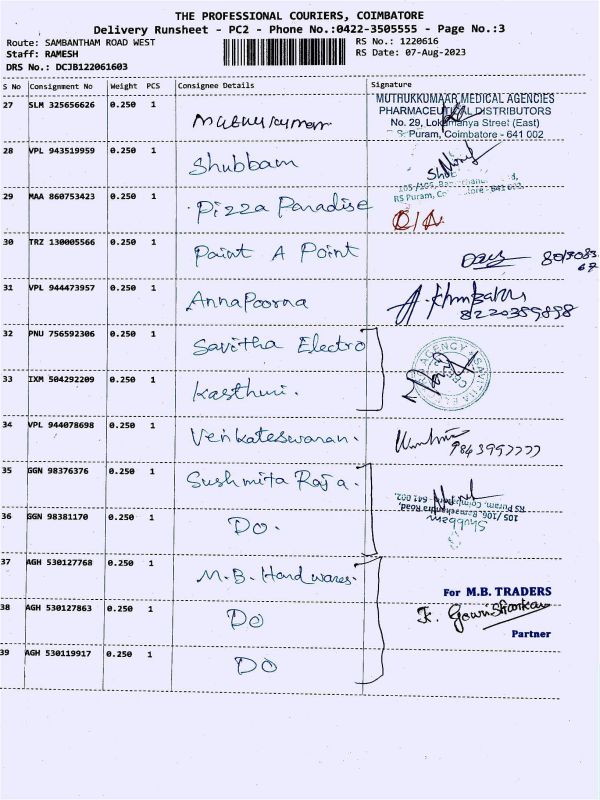 THE PROFESSIONAL COURIERS, COIMBATORE
Delivery Runsheet - PC2 - Phone No.:0422-3505555 - Page No.:3
Route: SAMBANTHAM ROAD WEST
RS No.: 1220616
Staff: RAMESH
RS Date: 07-Aug-2023
DRS No.: DCJB122061603
S No Consignment No Weight PCS Consignee Details Signature
27 SLM 325656626 0.250 1 Muthukumar
MUTHUKKUMAAR MEDICAL AGENCIES
PHARMACEUTICAL DISTRIBUTORS
No. 29, Lokamanya Street (East)
R.S. Puram, Coimbatore - 641 002
28 VPL 943519959 0.250 1 Shubbam
RS Puram,
29 MAA 860753423 0.250 1 Pizza Paradise
30 TRZ 130005566 0.250 1 Paint A Point
31 VPL 944473957 0.250 1 Annapoorna
8220359898
32 PNU 756592306 0.250 1 Savitha Electro
33 IXM 504292209 0.250 1 Kasthuri.
34 VPL 944078698 0.250 1 Venkateswaran.
9843997777
35 GGN 98376376 0.250 1 Sushmita Raja.
105/106, Ramachandra Road,
RS Puram, Coimbatore - 641 002.
Shubbam
36 GGN 98381170 0.250 1 Do.
37 AGH 530127768 0.250 1 M.B. Hardwares.
For M.B. TRADERS
38 AGH 530127863 0.250 1 Do
K. Gowrishankar
Partner
39 AGH 530119917 0.250 1 Do